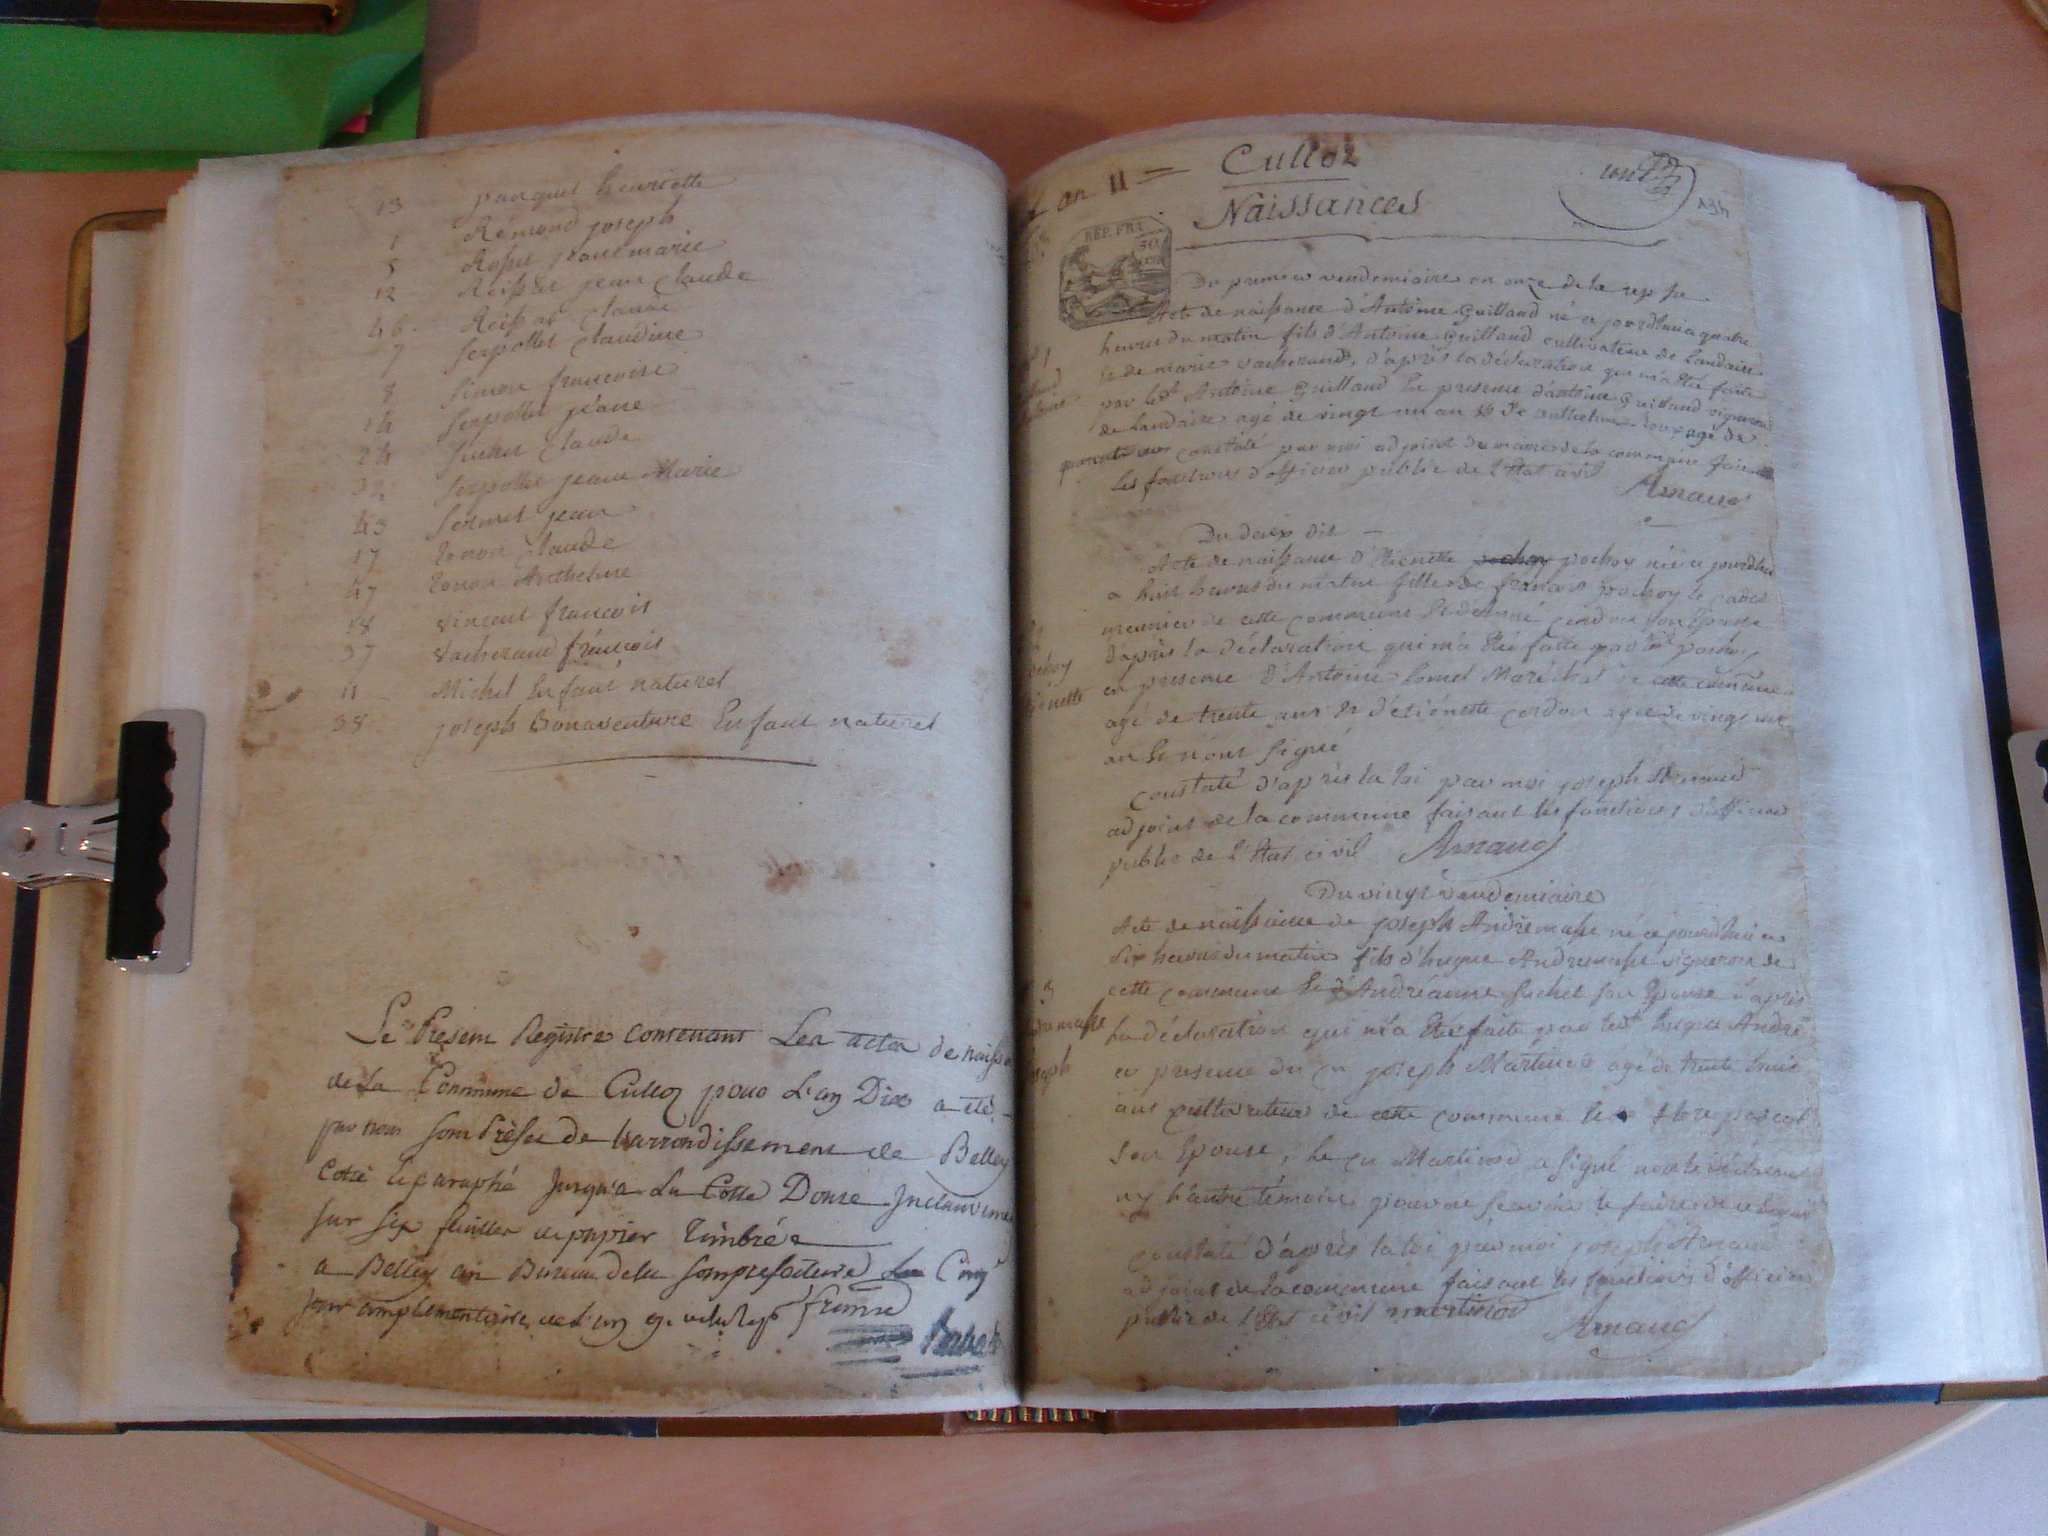 13 pasquet henriette
1 Rémond joseph
5 Rosset jeane marie
12 Reisset jean Claude
46 Reissat Claude
7 serpollet Claudine
8 Simon francoise
14 serpollet jeane
24 suchet Claude
32 serpollet jeane Marie
43 jean
17 tonon Claude
47 tonon Anthelme
18 vincent francois
37 vacherand francois
11 Michel Enfant naturel
38 joseph Bonaventure Enfant naturel
Le Present Registre contenant Les actes de naiss
de la Commune de Culloz pour L'an Dix a eté
par nous sous Préfet de l'arrondissement de Belley
Cotté et paraphé jusqu'a La Cotte Douze Inclusiveme
sur six feuilles de papier timbrée
a Belley au Bureau de la souprefecture Le Cinq
jour complementaire de l'an 9e de la Rep francaise
an 11 =
Culloz
Naissances
134
REP. FRA
Du premier vendemiaire an onze de la rep fse
Acte de naissance d'Antoine Guilland né ce jourdhui a quatre
heures du matin fils d'Antoine Guilland cultivateur de landaise
et de marie vacherand, d'après la déclaration qui m'a Eté faite
par led. Antoine Guilland En presence d'antoine Guilland vigneron
de landaise agé de vingt un an et de agé de
constaté par moi adjoint du maire de la commune faisant
les fonctions d'officier public de l'Etat civil
Arnaud
Du deux dit
Acte de naissance d'Etienette pochoy née ce jourdhui
a huit heures du matin fille de francois pochoy le cadet
meunier de cette commune et cordon son Epouse
d'après la déclaration qui m'a Eté faite par led. pochoy
en presence d'Antoine Maréchal de cette commune
agé de trente ans et d'étiénette cordon agée de vingt un
an et n'ont signé
Constaté d'après la loi par moi joseph Arnaud
adjoint de la commune faisant les fonctions d'officier
public de l'Etat civil Arnaud
Du vingt vendemiaire
Acte de naissance de joseph Andremasse né ce jourdhui a
six heures du matin fils d'hugue Andremasse vigneron de
cette commune et d'Andréanne suchet son Epouse d'après
la déclaration qui m'a Eté faite par led. hugue André
en presence du cn joseph Martinod agé de trente huit
ans cultivateur de cette commune et pascal
son Epouse, le cn Martinod a signé
ny l'autre témoin pour ne scavoir le faire de ce
constaté d'après la loi par moi joseph Arnaud
adjoint de la commune faisant les fonctions d'officier
public de l'Etat civil martinod
Arnaud